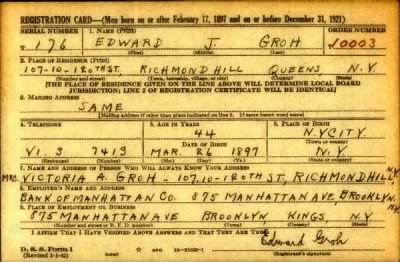 REGISTRATION CARD—(Men born on or after February 17, 1897 and on or before December 31, 1921)
SERIAL NUMBER 1. NAME (Print) ORDER NUMBER
T 176 EDWARD J. GROH 10003
(First) (Middle) (Last)
2. PLACE OF RESIDENCE (Print)
107-10-120TH ST, RICHMOND HILL QUEENS N.Y.
(Number and street) (Town, township, village, or city) (County) (State)
[THE PLACE OF RESIDENCE GIVEN ON THE LINE ABOVE WILL DETERMINE LOCAL BOARD
JURISDICTION; LINE 2 OF REGISTRATION CERTIFICATE WILL BE IDENTICAL]
3. MAILING ADDRESS
SAME
[Mailing address if other than place indicated on line 2. If same insert word same]
4. TELEPHONE 5. AGE IN YEARS 6. PLACE OF BIRTH
44 N.Y CITY
DATE OF BIRTH (Town or county)
VI. 3 7413 MAR. 26 1897 N.Y.
(Exchange) (Number) (Mo.) (Day) (Yr.) (State or country)
7. NAME AND ADDRESS OF PERSON WHO WILL ALWAYS KNOW YOUR ADDRESS
MRS. VICTORIA A. GROH - 107-10-120TH ST, RICHMOND HILL, N.Y.
8. EMPLOYER'S NAME AND ADDRESS
BANK OF MANHATTAN CO. 875 MANHATTAN AVE BROOKLYN. N.Y.
9. PLACE OF EMPLOYMENT OR BUSINESS
875 MANHATTAN AVE BROOKLYN KINGS, N.Y
(Number and street or R. F. D. number) (Town) (County) (State)
I AFFIRM THAT I HAVE VERIFIED ABOVE ANSWERS AND THAT THEY ARE TRUE.
D. S. S. Form 1
(Revised 1-1-42) (over)
Edward Groh